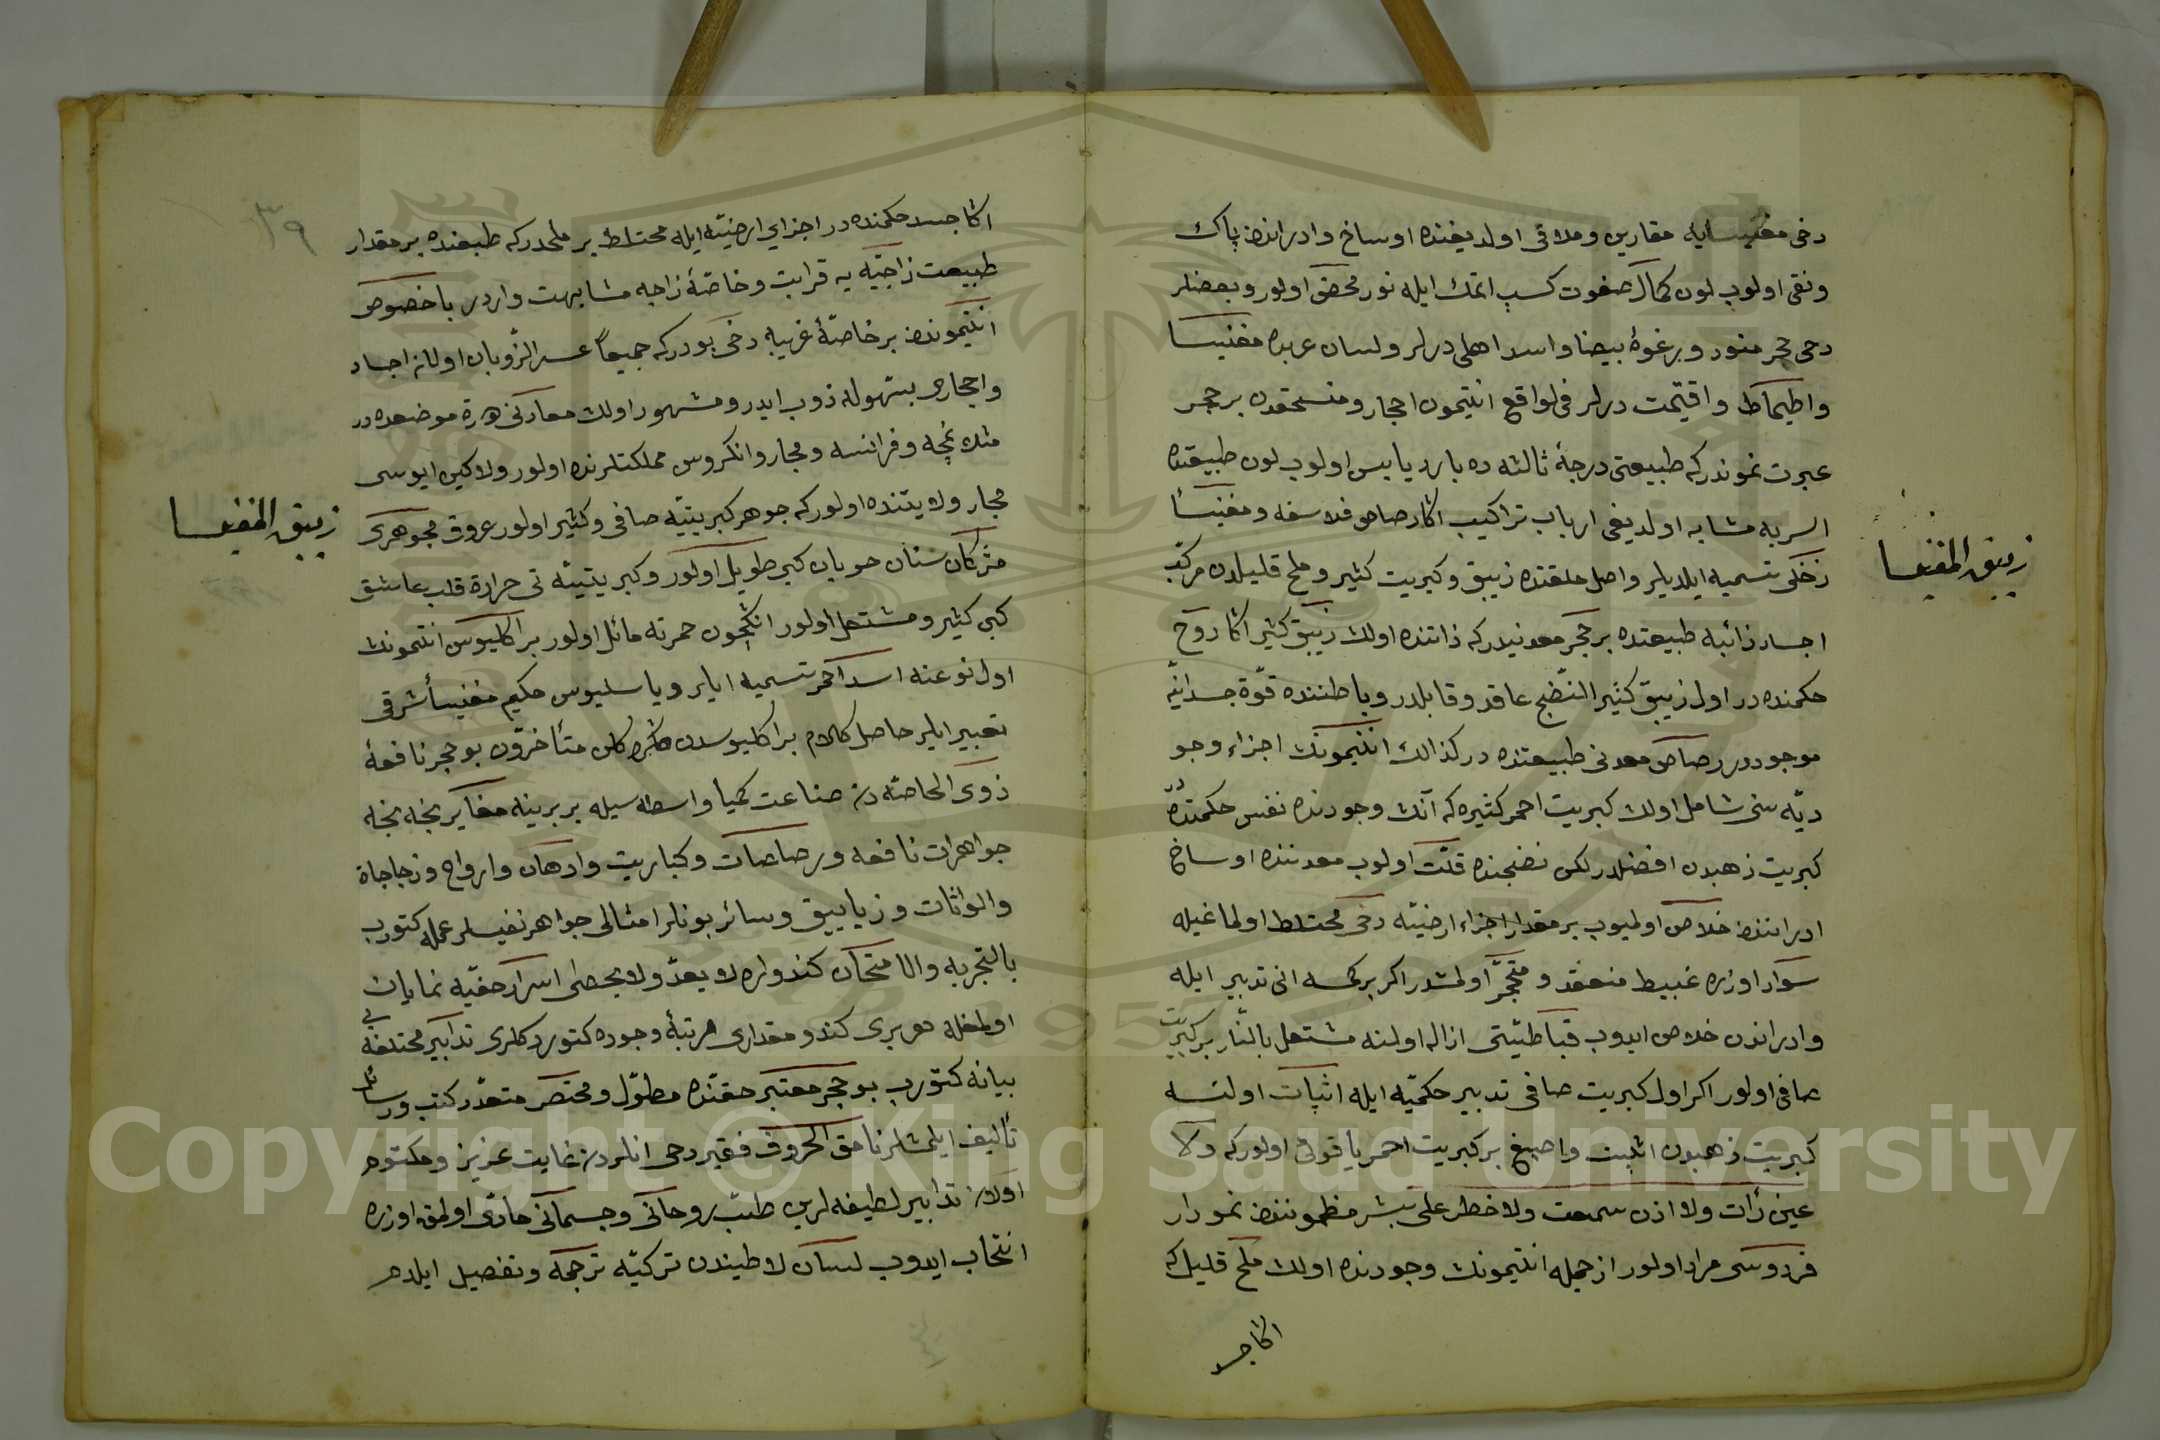 دخی مغنیسایه مقارین وملاقی اولدیغنده اوساخ وادراندن پاك
ونقی اولوب لون کمال صفوت کسب اتمك ایله نور محض اولور وبعضلر
دخی حجر منور ورغوۀ بیضا واسد اهلی درلر ولسان عربده مغنیسا
واطیماط واقتیمت درلر فی الواقع انتیمون احجار ومنسحقدن بر حجر
عبرت نموندر که طبیعتی درجۀ ثالثه ده بارد یابس اولوب لون طبیعتده
اسربه مشابه اولدیغی ارباب تراکیب اكا رصاص فلاسفه ومغنیسا
زحلی تسمیه ایلدیلر واصل خلقتده زیبق وکبریت کثیر وملح قلیلدن مرکب
اجساد ذائبه طبیعتده بر حجر معدنیدر که ذاتنده اولان زیبق کثیر اكا روح
حکمنده در اول زیبق کثیر النضج عاقد وقابلدر وباطننده قوۀ جسدانیه
موجوددر رصاص معدنی طبیعتنده در کذالك انتیمونك اجزاء وجو
دیه سنی شامل اولان کبریت احمر کثیره که آنك وجودنده نفس حکمنده در
کبریت ذهبدن افضلدر لکن نضجنده قلت اولوب معدننده اوساخ
ادراندن خلاص اولمیوب بر مقدار اجزاء ارضیه دخی مختلط اولماغیله
سواد اوزره غبیط منعقد ومتحجر اولمشدر اکر بر کمسه انی تدبیر ایله
وادراندن خلاص ایدوب قباطیتی ازاله اولنه مشتعل بالنار بر کبریت
صافی اولور اکر اول کبریت صافی تدبیر حکمیه ایله اثبات اولنسه
کبریت ذهبدن اثبت واصبغ بر کبریت احمر یاقوتی اولور که ولا
عین رأت ولا اذن سمعت ولا خطر علی بشر مظموننده نمودار
فردوسی مراد اولور از جمله انتیمونك وجودنده اولان ملح قلیل که
اكا جسد
زیبق المغنیسا
اكا جسد حکمنده در اجزای ارضیه ایله مختلط بر ملحدر که طبعنده بر مقدار
طبیعت زاجیه یه قرابت وخاصۀ زاجه مشابهت واردر باخصوص
انتیمونك بر خاصۀ غریبه دخی بودر که جمیعاً عسر الزوبان اولان اجساد
واحجاری بسهوله ذوب ایدر ومشهور اولان معادنی هرۀ موضعده در
مثلا نمچه وفرانسه ومجار وانکروس مملکتلرنده اولور ولاکین ایوسی
مجار ولایتنده اولور که جوهر کبریتیه صافی وکثیر اولور عروق مجوهری
مژکان سنان خوبان کبی طویل اولور وکبریتیه تی حرارة قلب عاشق
کبی کثیر ومشتعل اولور انكچون حمرته مائل اولور براکلیوس انتمونك
اول نوعنه اسد احمر تسمیه ایلر ویاسلیوس حکیم مغنیسأ شرقی
تعبیر ایلر حاصل کلام براکلیوسدن صکره کلن متأخرون بو حجر نافعۀ
ذوی الخاصه دن صناعت کمیا واسطه سیله بربرینه مغایر نجه نجه
جواهرات نافعه ورصاصات وکباریت وادهان وارواح وزجاجاة
والواثات وزیابیق وسائر بونلر امثالی جواهر نفیسلر عمله کتورب
بالتجربه والامتحان کندولره لایعد ولایحصی اسرار خفیه نمایان
اولمغله هر بری کندو مقداری مرتبۀ وجوده کتوردکلری تدابیر مختلفه یی
بیانه کتورب بو حجر معتبر حقنده مطول ومختصر متعدد کتب ورسائل
تألیف ایلمشلر نامق الحروف فقیر دخی انلردن غایت عزیز ومکتوم
اولان تدابیر لطیفه لرین طب روحانی وجسمانی حاوی اولمق اوزره
انتخاب ایدوب لسان لاطیندن ترکیه ترجمه وتفصیل ایلدم
زیبق المغنیسا
٣٩
Copyright © King Saud University
1957